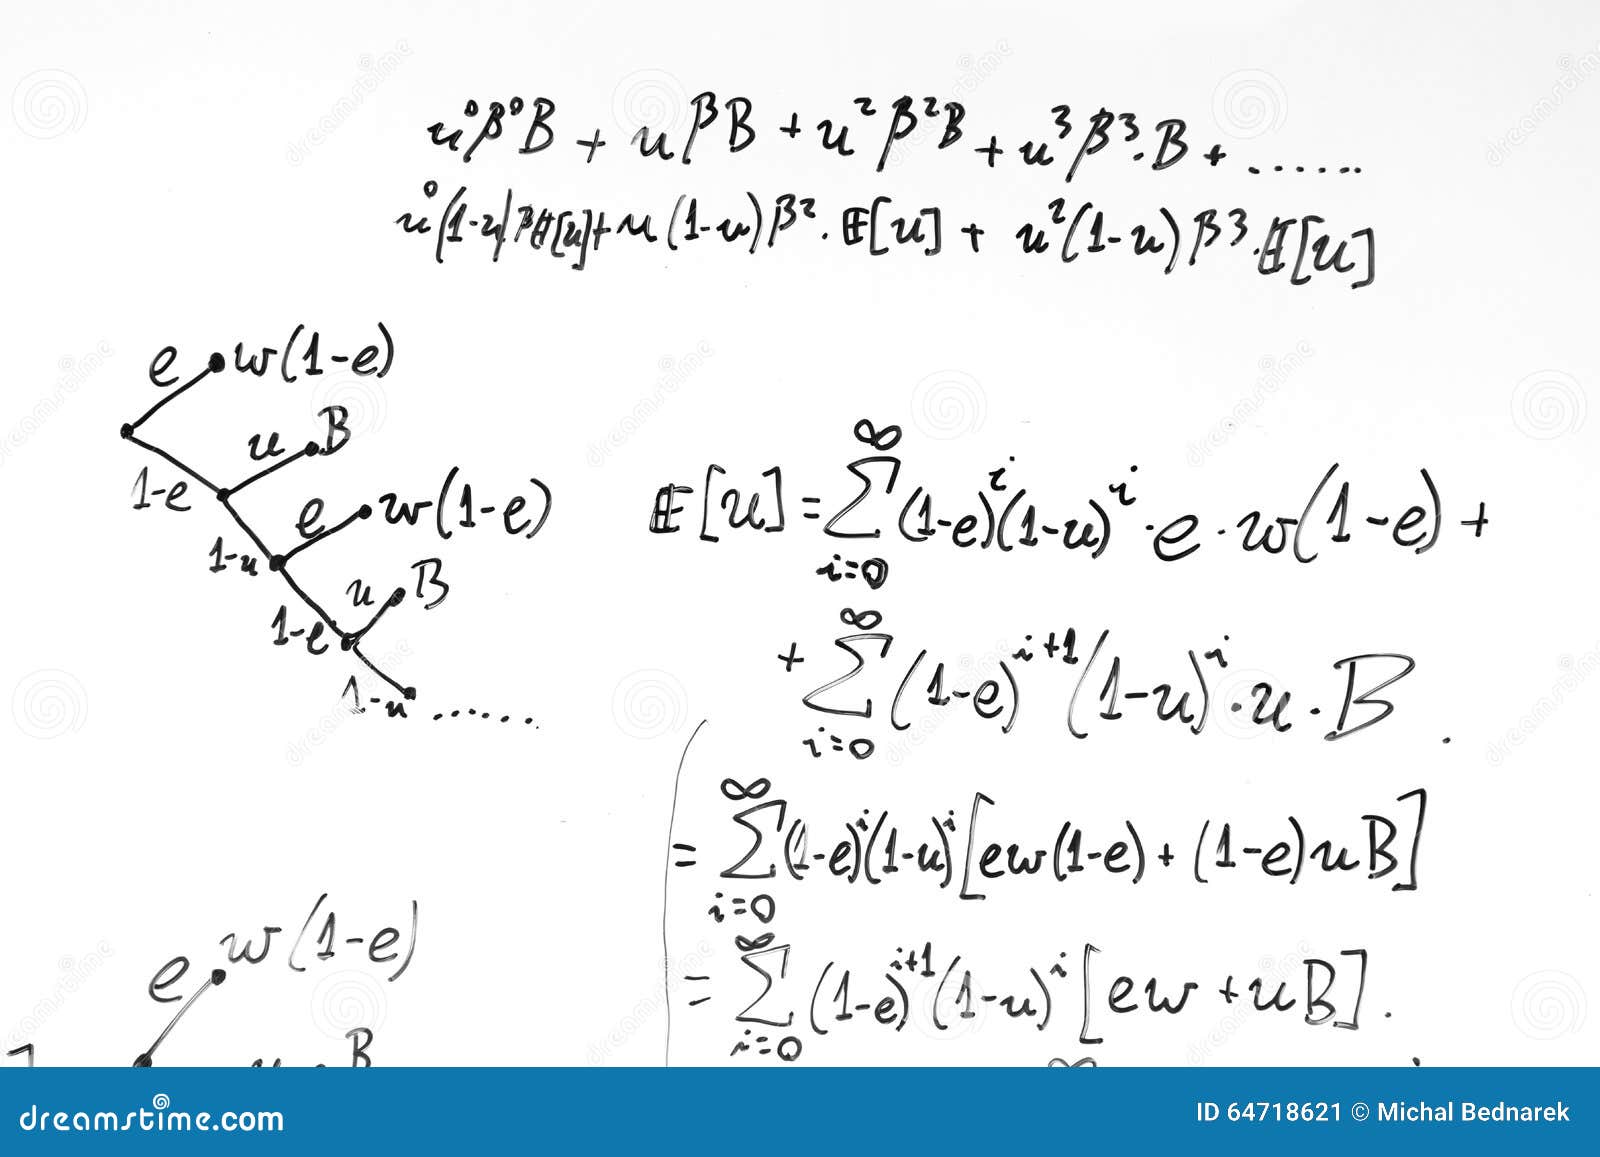 u⁰β⁰B + uβB + u²β²B + u³β³·B + ......
u⁰(1-u)βE[u] + u(1-u)β²·E[u] + u²(1-u)β³·E[u]
e w(1-e)
u B
1-e
e w(1-e)
1-u
u B
1-e
1-u ......
E[u] = ∑_{i=0}^{∞} (1-e)^i (1-u)^i · e · w(1-e) +
+ ∑_{i=0}^{∞} (1-e)^{i+1} (1-u)^i · u · B .
= ∑_{i=0}^{∞} (1-e)^i (1-u)^i [ew(1-e) + (1-e)uB]
= ∑_{i=0}^{∞} (1-e)^{i+1} (1-u)^i [ew + uB].
e w(1-e)
u B
∞
dreamstime.com
ID 64718621 © Michal Bednarek